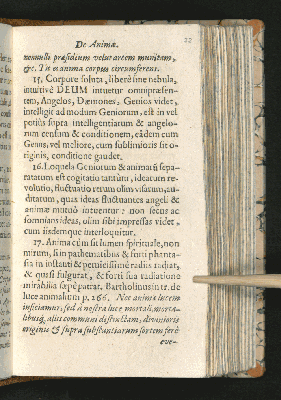 De Animæ.
22
nonnulli præsidium velut artem munitam,
&c. Tu es anima corpus circumferent.
15. Corpore soluta, liberè sine nebula,
intuitivè DEUM intuetur omnipræsen-
tem, Angelos, Dæmones, Genios videt,
intelligit ad modum Geniorum, & sit in vel
potiùs supra intelligentiarum & angelo-
rum censum & conditionem, eâdem cum
Geniis, vel meliore, cum sublimioris sit o-
riginis, conditione gaudet.
16. Loquela Geniorum & animarũ sepa-
ratarum est cogitatio tantùm, idearum re-
volutio, fluctuatio rerum olim visarum, au-
ditarum, quas ideas fluctuantes angeli &
animæ mutuò intuentur: non secus ac
somnians ideas, olim sibi impressas videt,
cum iisdemque interloquitur.
17. Anima cùm sit lumen spirituale, non
mirum, si in pathematibus & forti phanta-
sia in instanti & pernicissimè radiis radiat,
& quasi fulgurat, & forti sua radiatione
mirabilia sæpè patrat. Bartholinus in tr. de
luce animalium p. 266. Nec animæ lucem
inficiamur, sed à nostra luce mortali, morta-
libusq; aliis communi distinctam, divinioris
originis & supra substantiarum sortem ferè
eve-